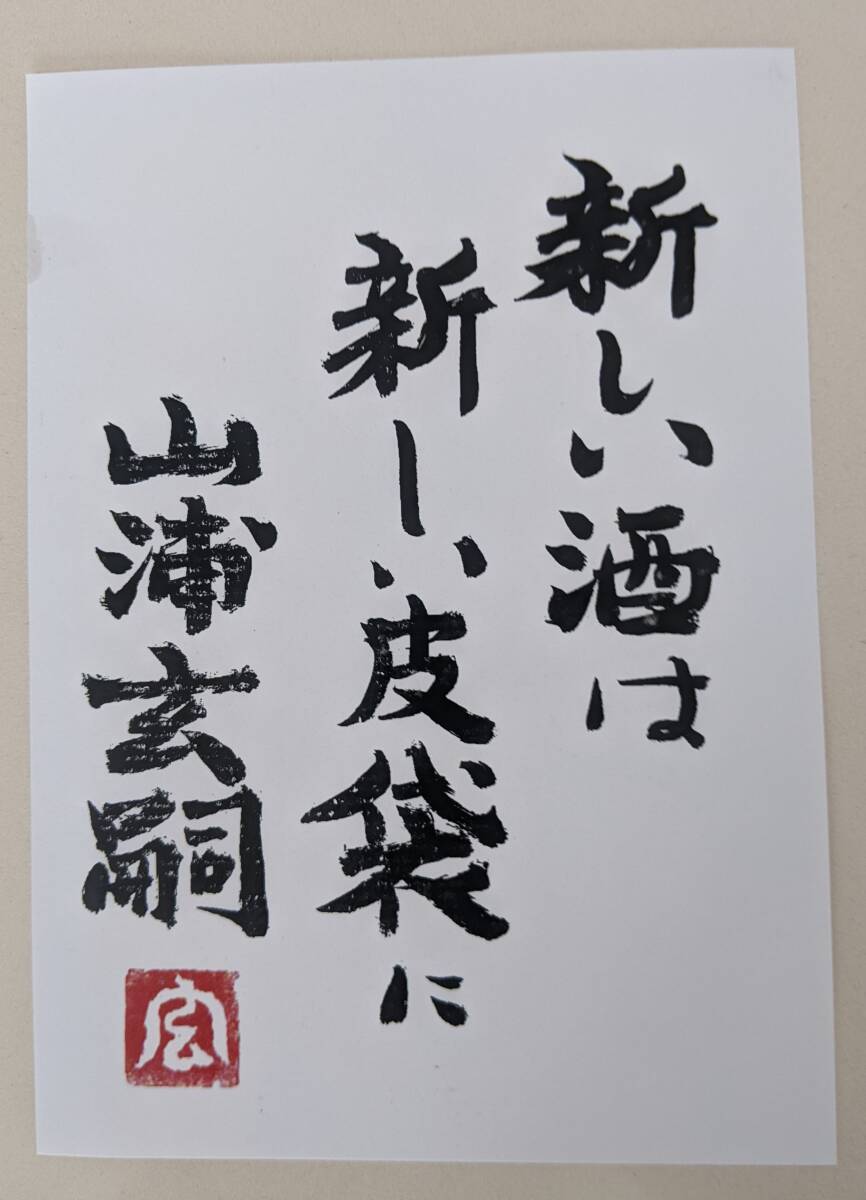 新しい酒は
新しい皮袋に
山浦玄嗣